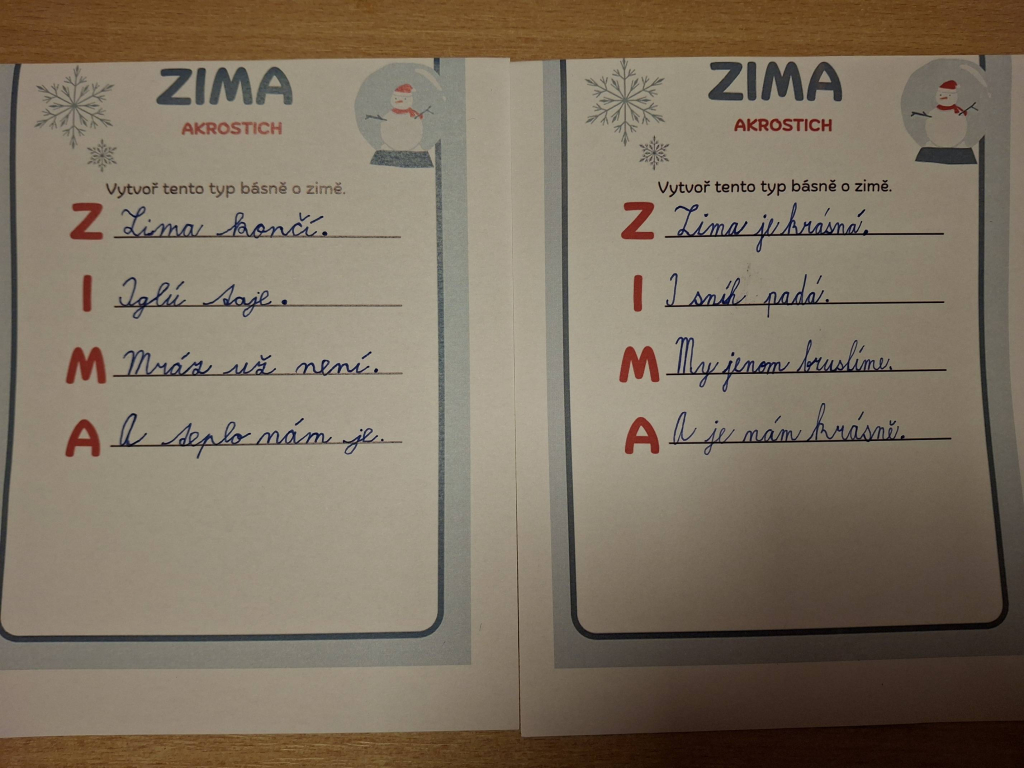 ZIMA
AKROSTICH
Vytvoř tento typ básně o zimě.
Z Zima končí.
I Iglú taje.
M Mráz už není.
A A teplo nám je.
ZIMA
AKROSTICH
Vytvoř tento typ básně o zimě.
Z Zima je krásná.
I I sníh padá.
M My jenom bruslíme.
A A je nám krásně.